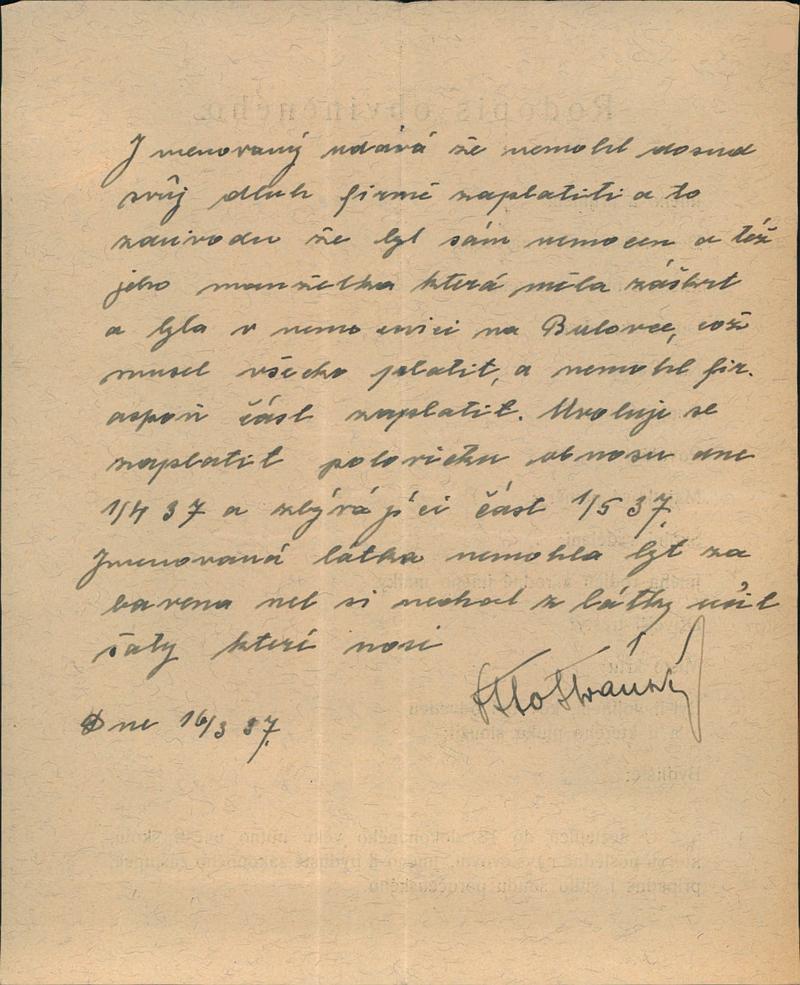 Jmenovaný udává že nemohl dosud
svůj dluh firmě zaplatiti a to
zdůvodu že byl sám nemocen a též
jeho manželka která měla záškrt
a byla v nemocnici na Bulovce, což
musel všecko platit, a nemohl fir.
aspoň část zaplatit. Uvoluje se
zaplatit polovičku obnosu dne
1/4 37 a zbývájíci část 1/5 37.
Jmenovaná látka nemohla byt za
bavena neb si nechal z látky ušít
šaty které nosi
Otto Stránský
Dne 16/3 37.
Rodopis obviněného.
Bydliště: